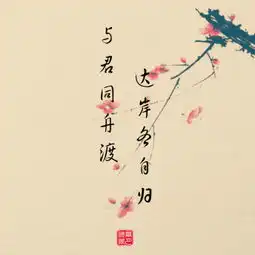 与君同舟渡
达岸各自归